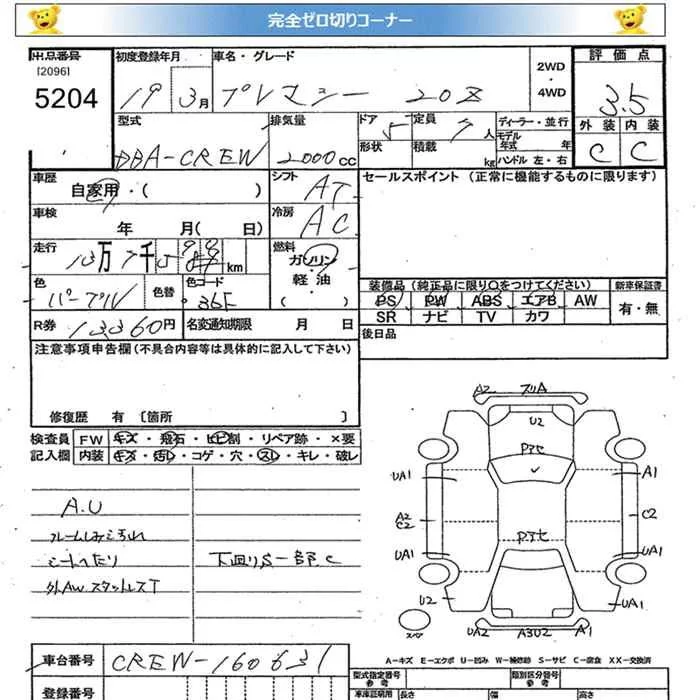 完全ゼロ切りコーナー
出品番号 初度登録年月 車名・グレード 2WD・4WD 評価点
[2096]
5204
19 3月 プレマシー 20Z 3.5
型式 排気量 ドア 5 定員 7人 ディーラー・並行 外装 内装
形状 積載 kg モデル年式 年
ハンドル 左・右
DBA-CREW 2000cc C C
車歴 シフト セールスポイント (正常に機能するものに限ります)
自家用・( ) AT
車検 冷房
年 月( 日) AC
走行 燃料
10万7千 km ガソリン・軽油・( )
色 色替 色コード 装備品 (純正品に限り○をつけてください) 新車保証書
パープル 36F PS PW ABS エアB AW 有・無
SR ナビ TV カワ
R券 13360円 名変通知期限 月 日 後日品
注意事項申告欄 (不具合内容等は具体的に記入して下さい)
修復歴 有 〔箇所 〕
検査員 FW キズ・飛石・ヒビ割・リペア跡・×要
記入欄 内装 キズ・汚レ・コゲ・穴・スレ・キレ・破レ
A.U
ルームしみ汚れ
シートへたり 下廻りS一部C
外AwスタットレスT
A2 スリA
U2
Pアセ
UA1 A1
A2
C2 C2
Pアセ
UA1 UA1
U2 UA1
スペア UA2 A3U2 A1
A-キズ E-エクボ U-凹み W-補修跡 S-サビ C-腐食 XX-交換済
車台番号 CREW-160631
登録番号 型式指定番号 参考 類別区分番号 参考
車庫証明用 長さ 幅 高さ
参考